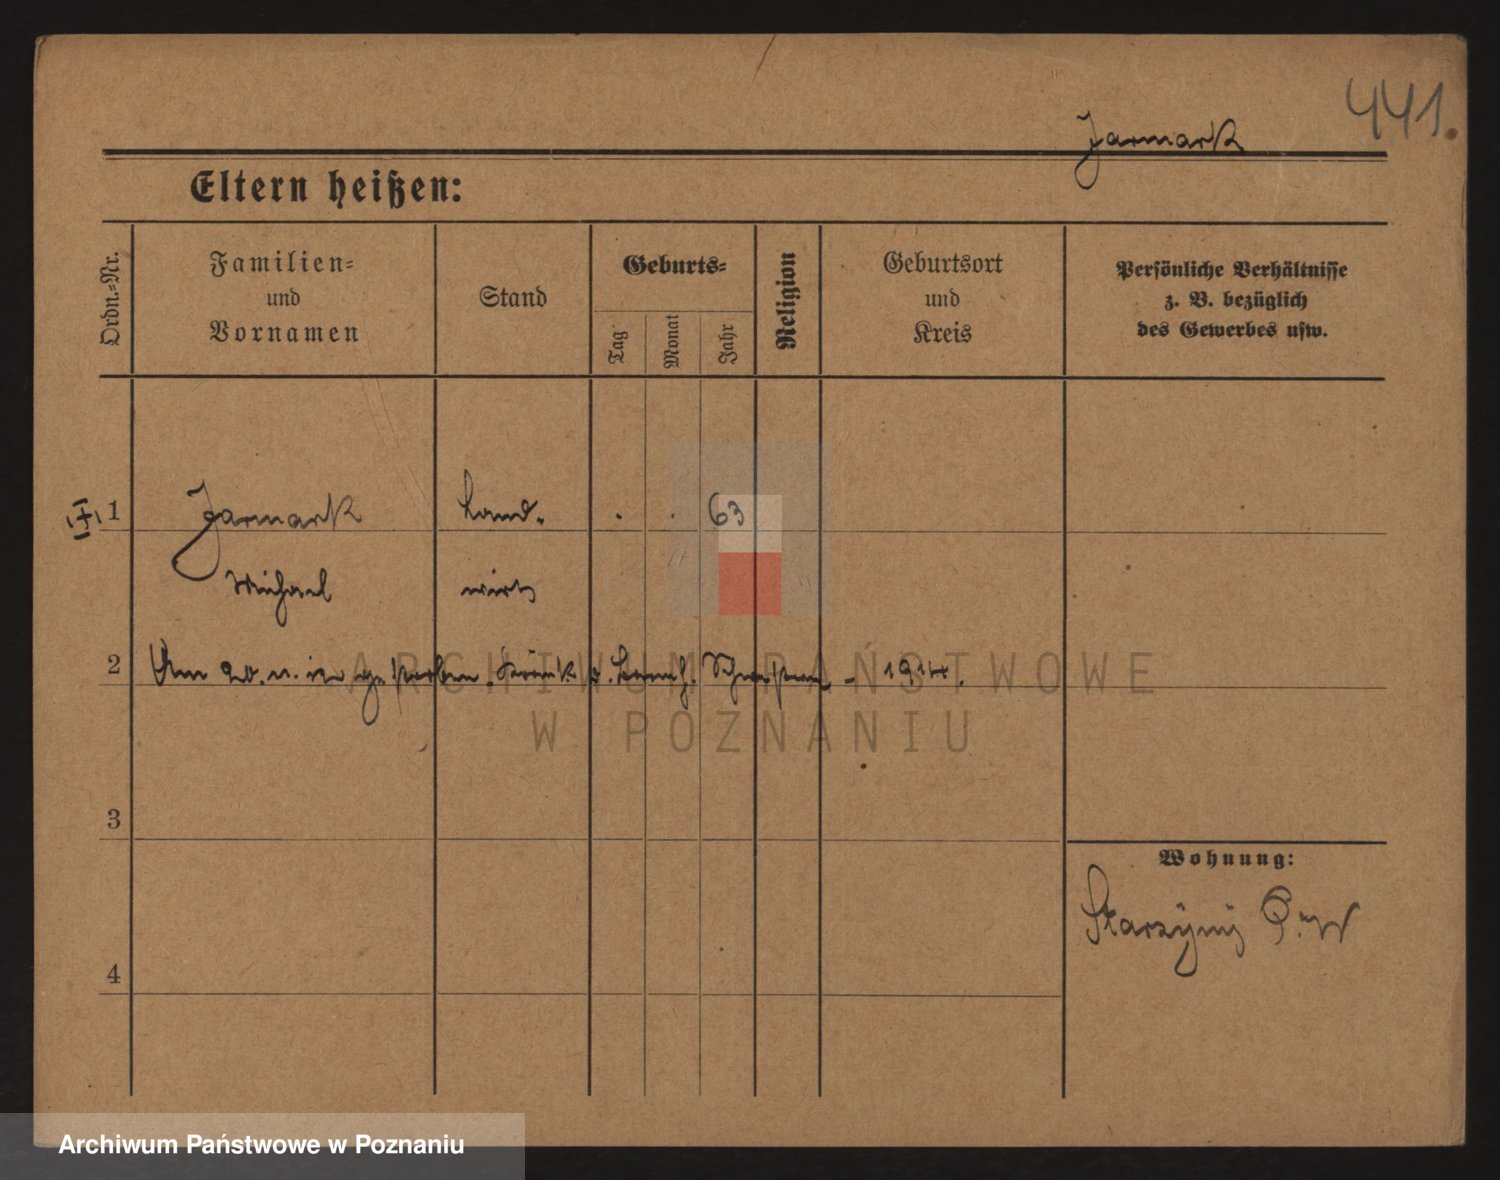 441.
Jarmark
Eltern heißen:
Ordn.-Nr.
Familien-
und
Vornamen
Stand
Geburts-
Tag
Monat
Jahr
Religion
Geburtsort
und
Kreis
Persönliche Verhältnisse
z. B. bezüglich
des Gewerbes usw.
1 Jarmark Land- . . 63
Michael wirt
2 Am 20. gestorben. 1914.
ARCHIWUM PAŃSTWOWE
W POZNANIU
3
Wohnung:
4
Archiwum Państwowe w Poznaniu